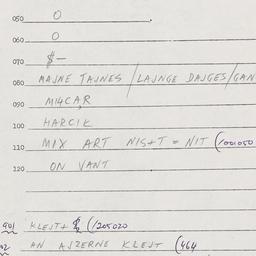 050 O
060 O
070 $-
080 MAJNE TAJNES / LAJNGE DAJGES / GAN
090 MI4CAR
100 HARCIK
110 MIX ART NIS+T = NIT (1001050
120 ON VANT
901 KLEJT+ (1205020
02 AN AJZERNE KLEJT (464